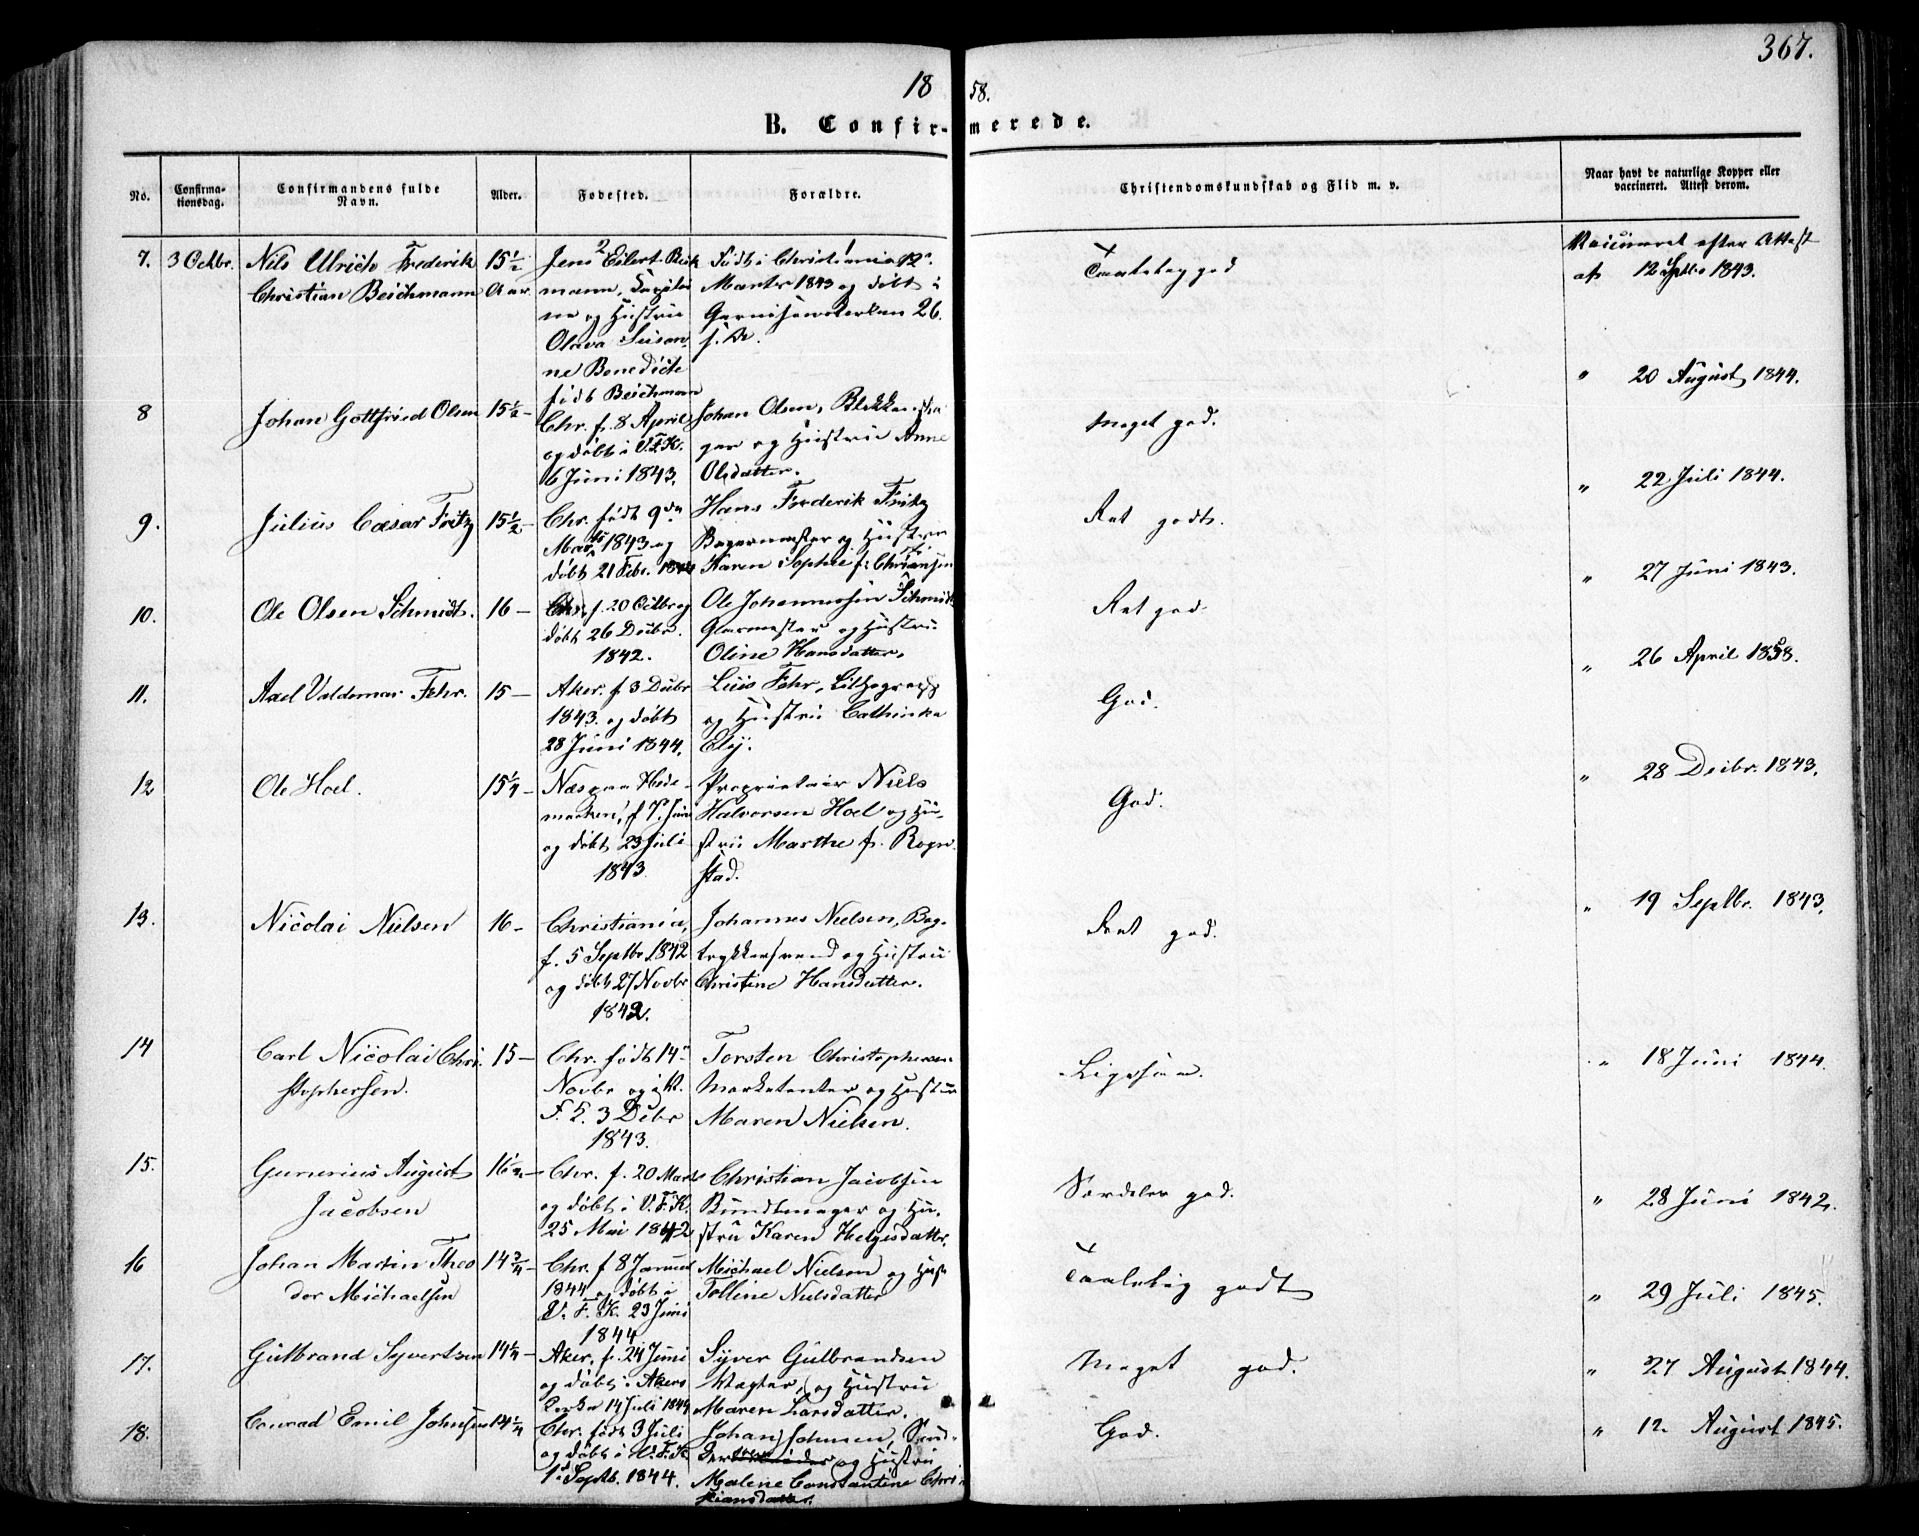 367.
18 58.
B. Confir- merede.
No.
Confirma-
tionsdag.
Confirmandens fulde
Navn.
Alder.
Fødested.
Forældre.
Christendomskundskab og Flid m. v.
Naar havt de naturlige Kopper eller
vaccineret. Attest derom.
7. 3 Octbr. Nils Ulrich Frederik
Christian Beichmann
15 1/2
Aar
Jens Eilert Beich
mann,
og Hustrue
Olava Susan
ne Benedicte
født Beichmann
Født i Christiania 12
Marts 1843 og døbt i
26
s. M.
Taalelig god
Vaccineret efter Attest
af 12 Septbr 1843.
8 Johan Gottfried Olsen 15 1/2 –
Chr. f. 8 April
og døbt i V. F. K.
6 Juni 1843.
Johan Olsen,
og Hustrue Anne
Olsdatter.
Meget god.
" 20 August 1844.
9. Julius Cæsar Fritz 15 1/2 –
Chr. født 9
Marts 1843 og
døbt 21 Febr. 1844
Hans Frederik Fritz
Bagermester og Hustrue
Karen Sophie f: Christiansen
Ret godt.
" 22 Juli 1844.
10. Ole Olsen Schmidt. 16 –
Chr. f. 20 Octbr og
døbt 26 Decbr.
1842.
Ole Johannessen Schmidt
Glarmester og Hustru
Oline Hansdatter.
Ret god.
" 27 Juni 1843.
11. Axel Valdemar Fehr. 15 –
Aker. f 3 Decbr
1843. og døbt
28 Juni 1844.
Luis Fehr, Lithograph
og Hustru Cathinka
Ely.
God.
" 26 April 1858.
12 Ole Hoel. 15 1/4 –
Næs paa Hede-
marken, f 7. Juni
og døbt 23 Juli
1843.
Proprietair Niels
Halvorsen Hoel og Hu-
stru Marthe f. Rogn-
stad.
God.
" 28 Decbr. 1843.
13. Nicolai Nielsen 16 –
Christiania,
f. 5 Septbr 1842
og døbt 27 Novbr
1842.
Johannes Nielsen, Bog-
trykkersvend og Hustru
Christine Hansdatter.
Ret god.
" 19 Septbr. 1843.
14 Carl Nicolai Chri-
stophersen.
15 –
Chr. født 14
Novbr og
F. K. 3 Decbr
1843.
Torsten Christophersen
Marketenter og Hustru
Maren Nielsen.
" 18 Juni 1844.
15. Gunerius August
Jacobsen
16 1/2 –
Chr. f. 20 Marts
og døbt i V. F. K.
25 Mai 1842
Christian Jacobsen
Bundtmager og Hu-
stru Karen Helgesdatter.
Særdeles god.
" 28 Juni 1842.
16 Johan Martin Theo
dor Michaelsen
14 3/4 –
Chr. f 8 Januar
1844 og døbt i
V. F. K. 23 Juni
1844
Michael Nielsen og Hust
Tolline Nielsdatter
Taalelig godt
" 29 Juli 1845.
17. Gulbrand Syvertsen 14 1/4 –
Aker, f. 24 Juni
og døbt i Akers
Kirke 14 Juli 1844
Syver Gulbrandsen
Vægter, og Hustru
Maren Larsdatter.
Meget god.
" 27 August 1844.
18. Conrad Emil Johnsen 14 1/4
Chr. født 3 Juli
og døbt i V. F. K
1 Septb. 1844.
Johan Johnsen,
og Hustru
Malene Constantine Chri
stiansdatter.
God.
" 12. August 1845.